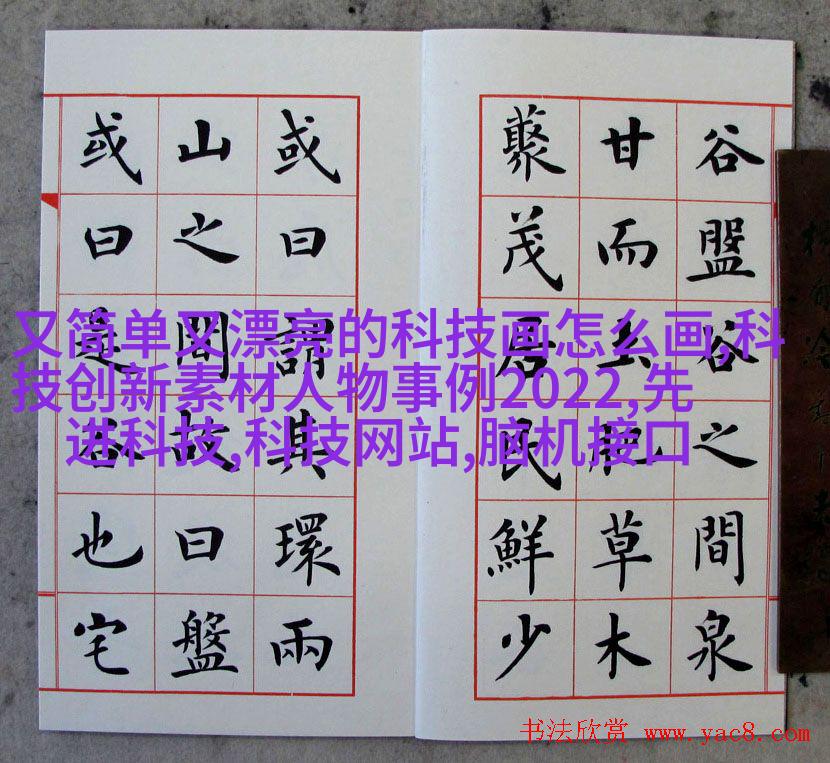 谷盤谷之間泉
甘而土肥草木
藂茂居民鮮少
或曰謂其環兩
山之間故曰盤
或曰是谷也宅
又简单又漂亮的科技画怎么画,科
技创新素材人物事例2022,先
进科技,科技网站,脑机接口
书法欣赏 www.yac8.com